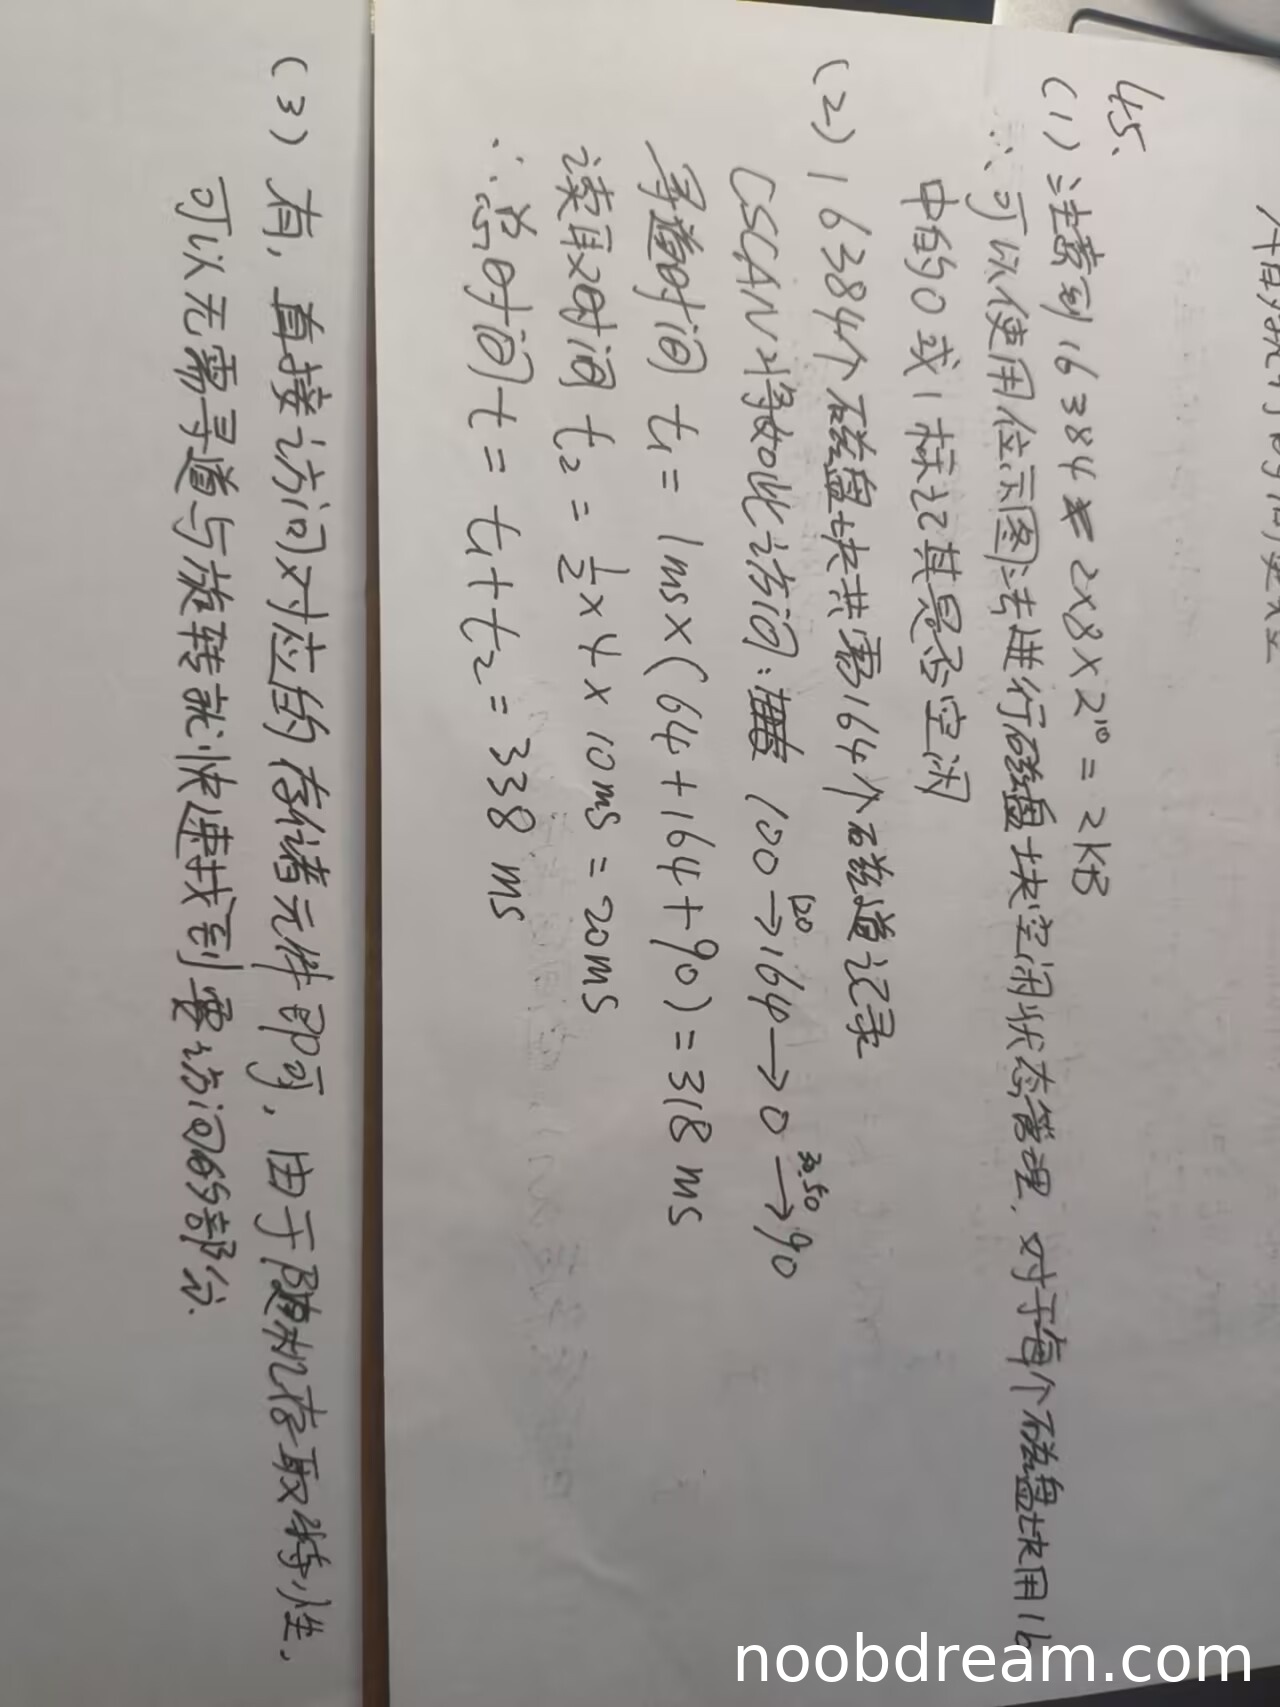 45.
(1) 注意到16384 = 2×8×2¹⁰ = 2KB
∴ 可以使用位示图法进行磁盘块空闲状态管理, 对于每个磁盘块用1b
中的0或1标记其是否空闲
(2) 16384个磁盘块共需164个磁道记录
CSCAN将如此访问: 100 →120 164 → 0 →30.50 90
寻道时间 t₁ = 1ms×(64+164+90) = 318 ms
读取时间 t₂ = ½×4×10ms = 20ms
∴ 总时间 t = t₁+t₂ = 338 ms
(3) 有, 直接访问对应的存储元件即可, 由于随机存取特性,
可以无需寻道与旋转就快速找到要访问的部分.
noobdream.com